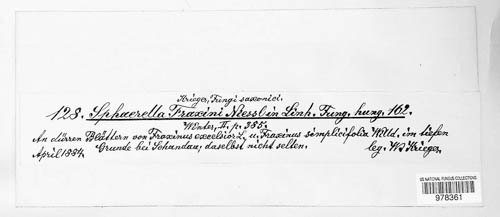 Krieger, Fungi saxonici.
128. Sphaerella Fraxini Niessl in Linh. Fung. hung. 162.
Winter, II. p. 385.
An dürren Blättern von Fraxinus excelsior L. u. Fraxinus simplicifolia Willd. im tiefen
Grunde bei Schandau; daselbst nicht selten.
April 1884. leg. W. Krieger.
US NATIONAL FUNGUS COLLECTIONS
978361